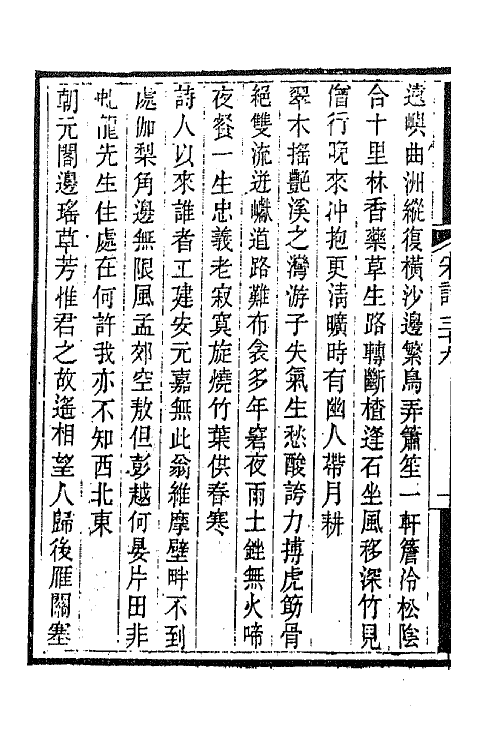 遠嶼曲洲縱復橫沙邊繁鳥弄簫笙一軒簷冷松陰
合十里林香藥草生路轉斷楂逢石坐風移深竹見
僧行晚來冲抱更淸曠時有幽人帶月耕
翠木搖艷溪之灣游子失氣生愁酸誇力搏虎筋骨
絕雙流迸巘道路難布衾多年窘夜雨土銼無火啼
夜餐一生忠義老寂寞旋燒竹葉供春寒
詩人以來誰者工建安元嘉無此翁維摩壁畔不到
處伽梨角邊無限風孟郊空敖但彭越何晏片田非
虬龍先生住處在何許我亦不知西北東
朝元閣邊瑤草芳惟君之故遙相望人歸後雁關塞
宋詩 三十九